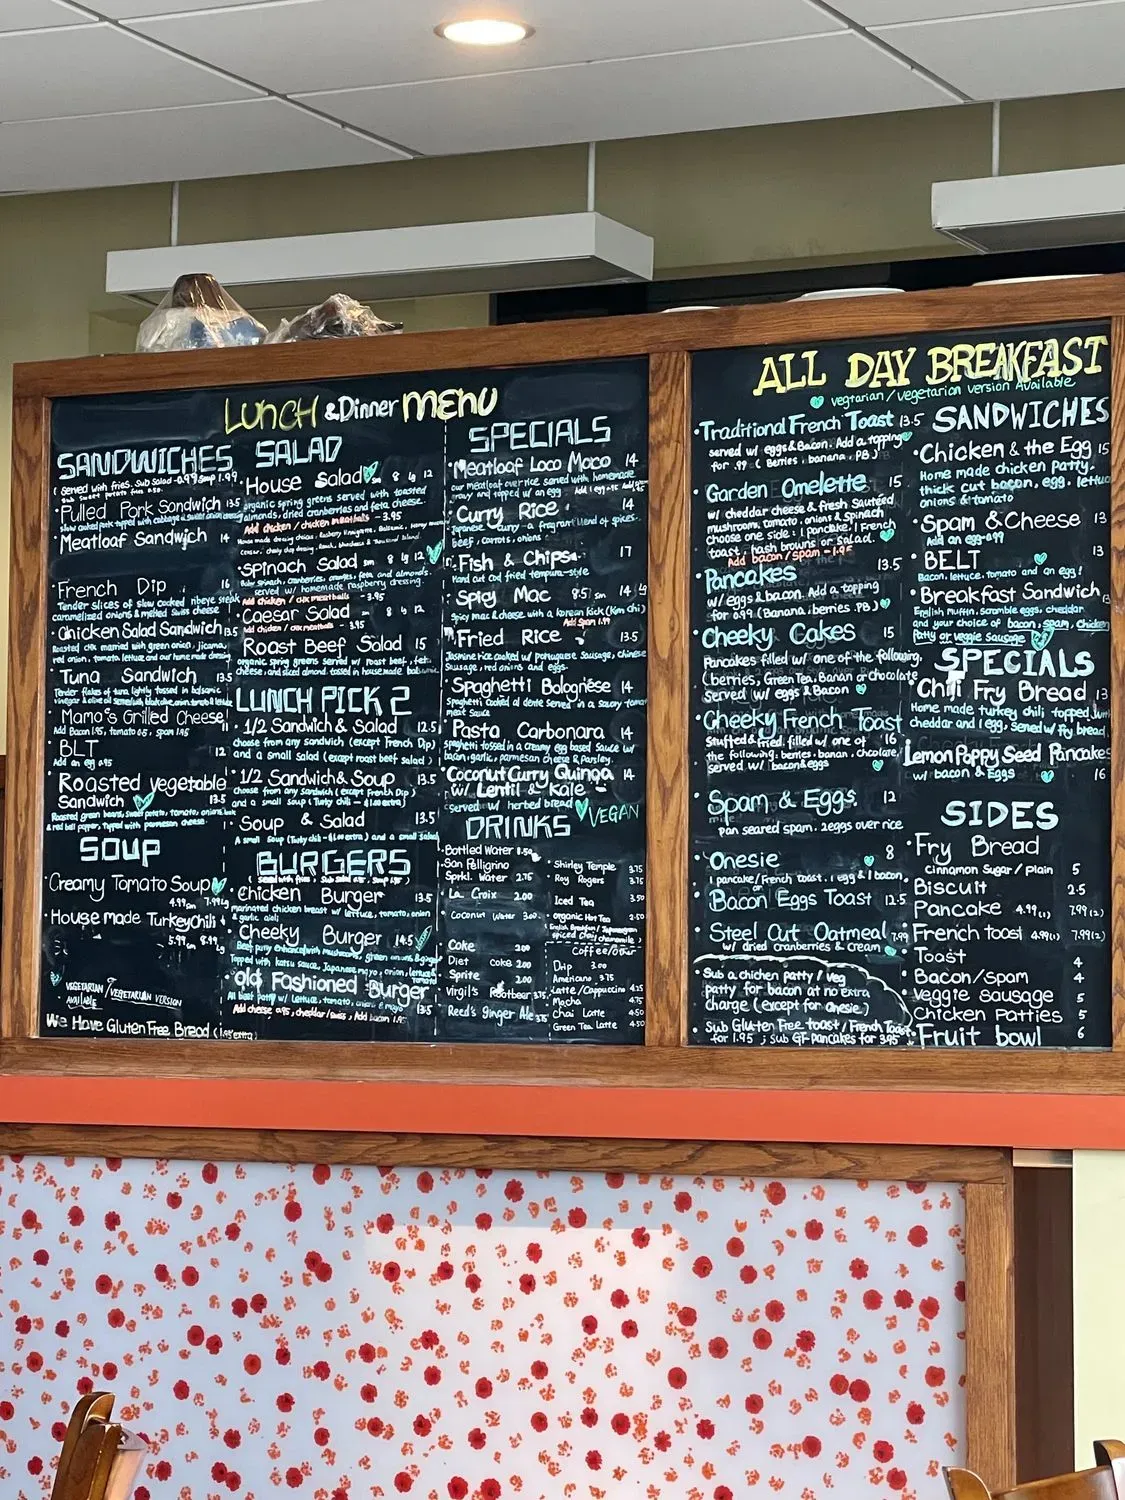 LUNCH & Dinner MENU
SANDWICHES
(served w/ fries. Sub Salad -0.99 Soup 1.99
Pulled Pork Sandwich 13.5
Meatloaf Sandwich 14
French Dip 16
Tender slices of slow cooked ribeye steak
caramelized onions & melted Swiss cheese
Chicken Salad Sandwich 13.5
Roasted chx married with green onion, jicama,
red onion, tomato lettuce and our home made dressing
Tuna Sandwich 13.5
Tender flakes of tuna lightly tossed in balsamic
Mama's Grilled Cheese 11
Add Bacon 1.95, tomato 0.5, spam 1.95
BLT 12
Add an egg 0.95
Roasted vegetable
Sandwich 13.5
Roasted green beans, sweet potato, tomato, onions,
& red bell pepper, Topped with parmesan cheese.
SOUP
Creamy Tomato Soup
4.99 sm 7.99 lg
House made Turkey Chili
5.99 sm 8.99 lg
VEGETARIAN / VEGETARIAN VERSION
AVAILABLE
We Have Gluten Free Bread (1.95 extra)
SALAD
House Salad sm 8 lg 12
organic spring greens served with toasted
almonds, dried cranberries and feta cheese.
Add chicken / chicken meatballs - 3.95
Spinach Salad sm 8 lg 12
Baby spinach, cranberries, oranges, feta and almonds.
served w/ homemade raspberry dressing.
Add chicken / chx meatballs - 3.95
Caesar Salad sm 8 lg 12
Add chicken / chx meatballs - 3.95
Roast Beef Salad 15
organic spring greens served w/ roast beef, feta
cheese, and sliced almond tossed in house made balsamic
LUNCH PICK 2
1/2 Sandwich & Salad 12.5
choose from any sandwich (except French Dip)
and a small Salad (except roast beef salad)
1/2 Sandwich & Soup 13.5
choose from any sandwich (except French Dip)
and a small soup (Turkey chili - $1.00 extra)
Soup & Salad 13.5
A small Soup (Turkey chili - $1.00 extra) and a small Salad
BURGERS
Chicken Burger 13.5
marinated chicken breast w/ lettuce, tomato, onion
& garlic aioli
Cheeky Burger 14.5
Beef patty enhanced with mushrooms, green onions & ginger
Topped with katsu sauce, Japanese mayo, onion, lettuce &
Old Fashioned Burger 13.5
All beef patty w/ Lettuce, tomato, onions & mayo
Add cheese 0.95, cheddar/swiss, Add bacon 1.95
SPECIALS
Meatloaf Loco Moco 14
our meatloaf over rice served with homemade
gravy and topped w/ an egg
Curry Rice 14
Japanese Curry - a fragrant blend of spices.
beef, carrots, onions
Fish & Chips 17
Hand cut Cod fried tempura-style
Spicy Mac 8.5 sm 14 lg
Spicy Mac & cheese with a Korean kick (Kim chi)
Add Spam 1.99
Fried Rice 13.5
Jasmine rice cooked w/ portuguese Sausage, chinese
Sausage, red onions and eggs.
Spaghetti Bolognese 14
Spaghetti cooked al dente served in a savory tomato
meat sauce
Pasta Carbonara 14
spaghetti tossed in a creamy egg based sauce w/
bacon, garlic, parmesan cheese & parsley.
Coconut Curry Quinoa 14
w/ Lentil & Kale
served w/ herbed bread VEGAN
DRINKS
Bottled Water 1.50
San Pelligrino
Sprkl. Water 2.75
La Croix 2.00
Coconut Water 3.00
Coke 2.00
Diet Coke 2.00
Sprite 2.00
Virgil's Rootbeer 3.75
Reed's ginger Ale 3.75
Shirley Temple 3.75
Roy Rogers 3.75
Iced Tea 3.50
organic Hot Tea 2.50
Coffee/other
Drip 3.00
Americano 3.75
Latte/Cappuccino 4.25
Mocha 4.75
Chai Latte 4.50
Green Tea Latte 4.50
ALL DAY BREAKFAST
vegtarian / vegetarian version Available
Traditional French Toast 13.5
served w/ eggs & Bacon. Add a topping
for .99 (Berries, banana, PB)
Garden Omelette 15
w/ cheddar cheese & fresh sautéed
mushroom, tomato, onions & spinach
choose one side: 1 pancake, 1 French
toast, hash browns or salad.
Add bacon/spam - 1.95
Pancakes 13.5
w/ eggs & bacon. Add a topping
for 0.99 (Banana, berries, PB)
Cheeky Cakes 15
Pancakes filled w/ one of the following,
(berries, Green Tea, Banana or chocolate)
Served w/ eggs & Bacon
Cheeky French Toast 16
Stuffed & Fried, filled w/ one of
the following: berries, banana, chocolate/
served w/ bacon & eggs
Spam & Eggs. 12
pan seared spam. 2 eggs over rice
Onesie 8
1 pancake/French toast, 1 egg & 1 bacon
Bacon Eggs Toast 12.5
Steel Cut Oatmeal 7.99
w/ dried cranberries & cream
Sub a chicken patty / veg
patty for bacon at no extra
charge (except for onesie.)
Sub Gluten Free toast / French Toast
for 1.95; sub GF pancakes for 3.95
SANDWICHES
Chicken & the Egg 15
Home made chicken patty.
thick cut bacon, egg, lettuce
onions & tomato
Spam & Cheese 13
Add an egg 0.99
BELT 13
Bacon, lettuce, tomato and an egg!
Breakfast Sandwich
English muffin, scramble eggs, cheddar
and your choice of bacon, spam, chicken
Patty or veggie Sausage
SPECIALS
Chili Fry Bread 13
Home made turkey chili topped with
cheddar and 1 egg. Served w/ fry bread
Lemon Poppy Seed Pancakes
w/ bacon & Eggs 16
SIDES
Fry Bread
Cinnamon Sugar / plain 5
Biscuit 2.5
Pancake 4.99(1) 7.99(2)
French toast 4.99(1) 7.99(2)
Toast 4
Bacon/Spam 4
Veggie sausage 5
Chicken Patties 5
Fruit bowl 6